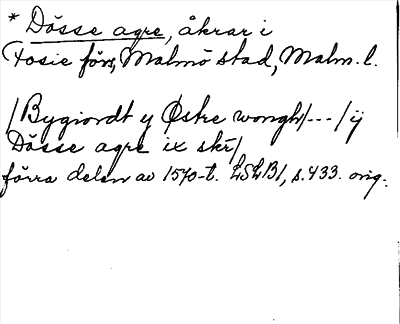 * Dösse agre, åkrar i
Fosie förs, Malmö stad, Malm. l.
/Bygiordt y Østre wongh/---/ij
Dösse agre ix skr/
förra delen av 1570-t. LSLB1, s. 433. orig.